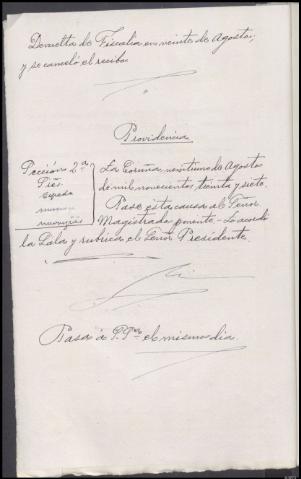 Devuelta de Fiscalía en veinte de Agosto;
y se canceló el recibo
Providencia
Sección 2ª
Sres.
Cepeda
La Coruña veintiuno de Agosto
de mil novecientos treinta y siete.
Pase esta causa al Señor
Magistrado ponente - Lo acordó
la Sala y rubrica el Señor Presidente.
Pasa á P. el mismo dia.